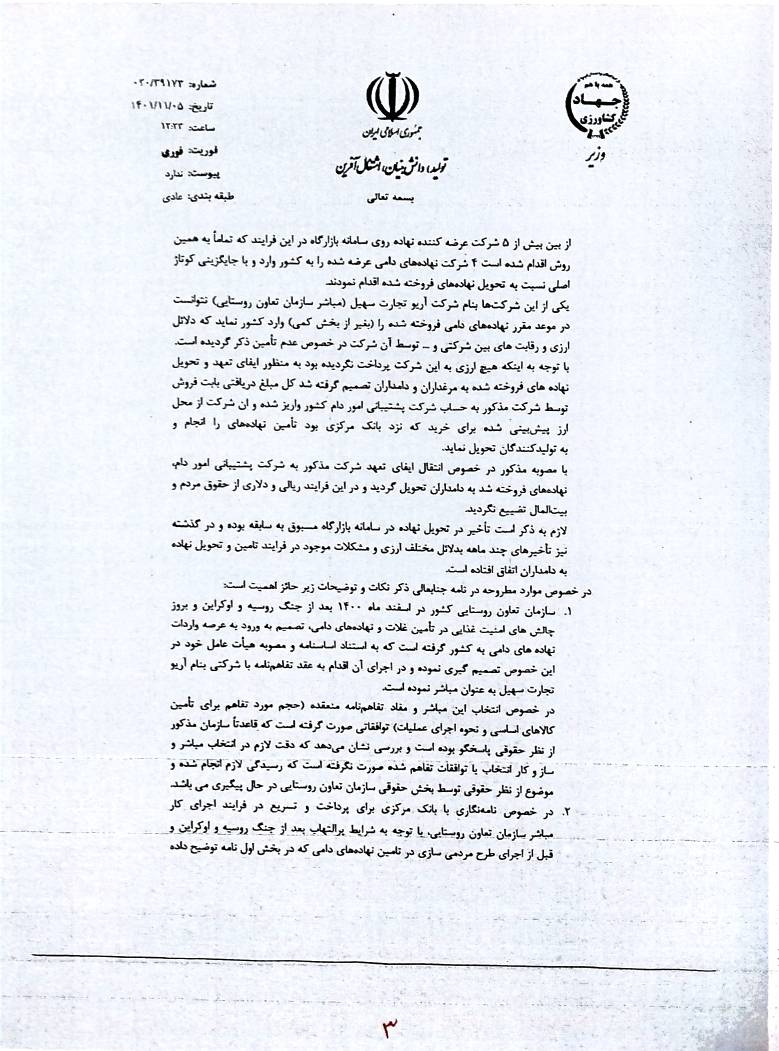 شماره: ۰۲۰/۳۹۱۷۳
تاریخ: ۱۴۰۱/۱۱/۰۵
ساعت: ۱۲:۲۳
فوریت: فوری
پیوست: ندارد
طبقه بندی: عادی
جمهوری اسلامی ایران
تولید، دانش بنیان، اشتغال آفرین
بسمه تعالی
همه با هم
جهاد
کشاورزی
وزیر
از بین بیش از ۵ شرکت عرضه کننده نهاده روی سامانه بازارگاه در این فرایند که تماماً به همین
روش اقدام شده است ۴ شرکت نهاده‌های دامی عرضه شده را به کشور وارد و با جایگزینی کوتاژ
اصلی نسبت به تحویل نهاده‌های فروخته شده اقدام نمودند.
یکی از این شرکت‌ها بنام شرکت آریو تجارت سهیل (مباشر سازمان تعاون روستایی) نتوانست
در موعد مقرر نهاده‌های دامی فروخته شده را (بغیر از بخش کمی) وارد کشور نماید که دلائل
ارزی و رقابت های بین شرکتی و ... توسط آن شرکت در خصوص عدم تأمین ذکر گردیده است.
با توجه به اینکه هیچ ارزی به این شرکت پرداخت نگردیده بود به منظور ایفای تعهد و تحویل
نهاده های فروخته شده به مرغداران و دامداران تصمیم گرفته شد کل مبلغ دریافتی بابت فروش
توسط شرکت مذکور به حساب شرکت پشتیبانی امور دام کشور واریز شده و ان شرکت از محل
ارز پیش‌بینی شده برای خرید که نزد بانک مرکزی بود تأمین نهاده‌های را انجام و
به تولیدکنندگان تحویل نماید.
با مصوبه مذکور در خصوص انتقال ایفای تعهد شرکت مذکور به شرکت پشتیبانی امور دام،
نهاده‌های فروخته شد به دامداران تحویل گردید و در این فرایند ریالی و دلاری از حقوق مردم و
بیت‌المال تضییع نگردید.
لازم به ذکر است تأخیر در تحویل نهاده در سامانه بازارگاه مسبوق به سابقه بوده و در گذشته
نیز تأخیرهای چند ماهه بدلائل مختلف ارزی و مشکلات موجود در فرایند تامین و تحویل نهاده
به دامداران اتفاق افتاده است.
در خصوص موارد مطروحه در نامه جنابعالی ذکر نکات و توضیحات زیر حائز اهمیت است:
۱. سازمان تعاون روستایی کشور در اسفند ماه ۱۴۰۰ بعد از جنگ روسیه و اوکراین و بروز
چالش های امنیت غذایی در تأمین غلات و نهاده‌های دامی، تصمیم به ورود به عرصه واردات
نهاده های دامی به کشور گرفته است که به استناد اساسنامه و مصوبه هیأت عامل خود در
این خصوص تصمیم گیری نموده و در اجرای آن اقدام به عقد تفاهم‌نامه با شرکتی بنام آریو
تجارت سهیل به عنوان مباشر نموده است.
در خصوص انتخاب این مباشر و مفاد تفاهم‌نامه منعقده (حجم مورد تفاهم برای تأمین
کالاهای اساسی و نحوه اجرای عملیات) توافقاتی صورت گرفته است که قاعدتاً سازمان مذکور
از نظر حقوقی پاسخگو بوده است و بررسی نشان می‌دهد که دقت لازم در انتخاب مباشر و
ساز و کار انتخاب یا توافقات تفاهم شده صورت نگرفته است که رسیدگی لازم انجام شده و
موضوع از نظر حقوقی توسط بخش حقوقی سازمان تعاون روستایی در حال پیگیری می باشد.
۲. در خصوص نامه‌نگاری با بانک مرکزی برای پرداخت و تسریع در فرایند اجرای کار
مباشر سازمان تعاون روستایی، با توجه به شرایط پرالتهاب بعد از جنگ روسیه و اوکراین و
قبل از اجرای طرح مردمی سازی در تامین نهاده‌های دامی که در بخش اول نامه توضیح داده
۳